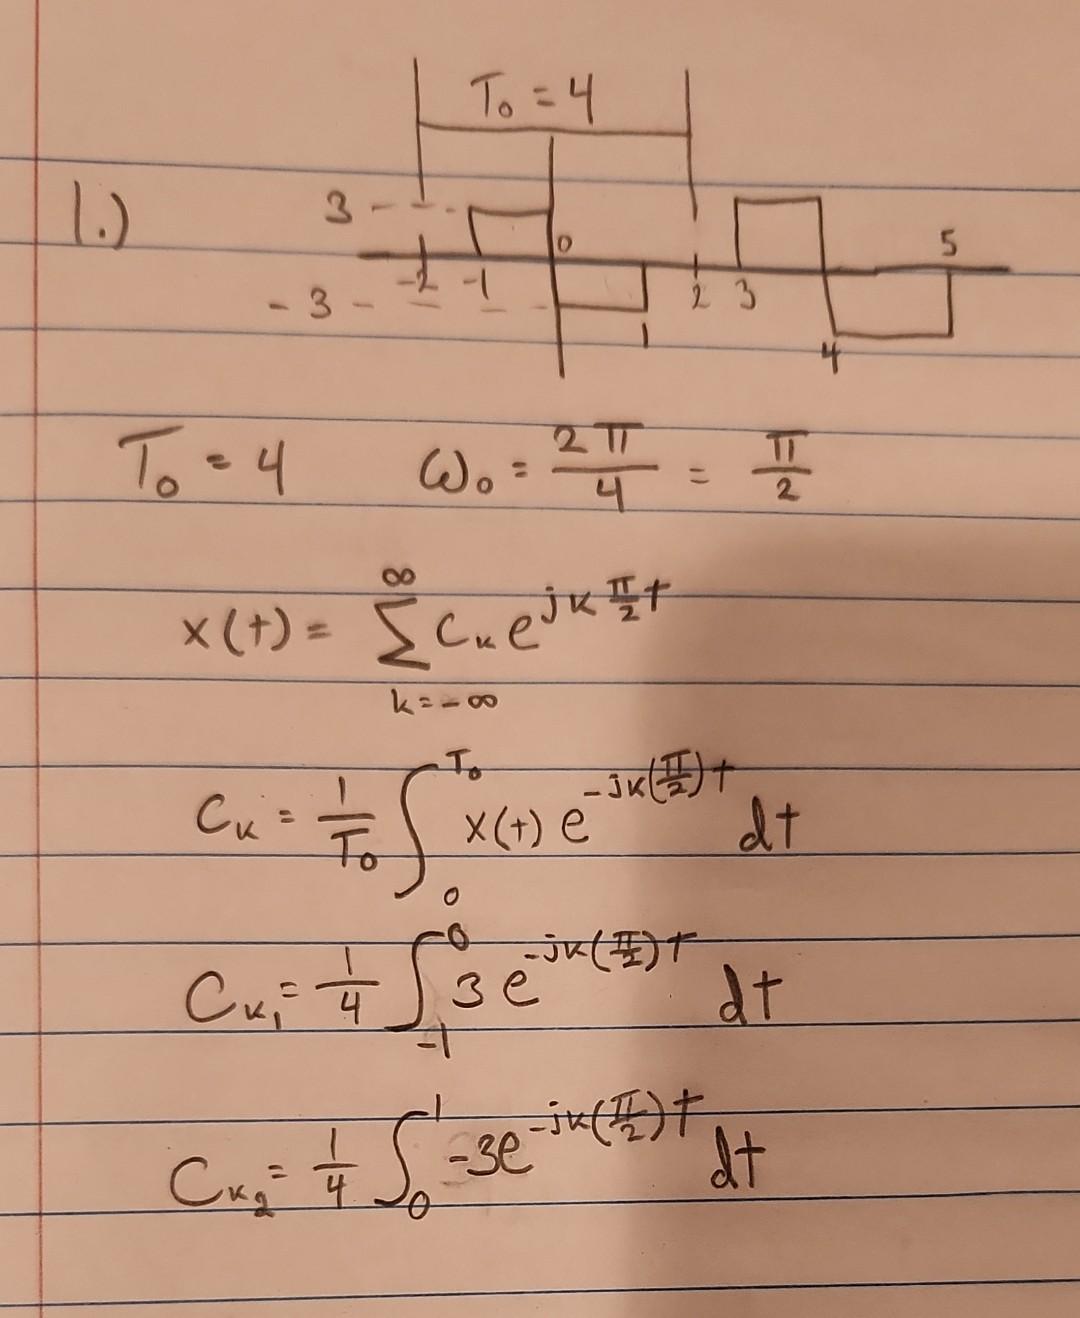 T₀ = 4
1.)
3
0
5
-2 -1 2 3
-3
1 4
T₀ = 4 ω₀ = 2π/4 = π/2
x(t) = ∑_{k=-∞}^{∞} Cₖ e^{jk π/2 t}
Cₖ = 1/T₀ ∫₀^{T₀} x(t) e^{-jk(π/2)t} dt
C_{k₁} = 1/4 ∫_{-1}^{0} 3e^{-jk(π/2)t} dt
C_{k₂} = 1/4 ∫₀^{1} -3e^{-jk(π/2)t} dt